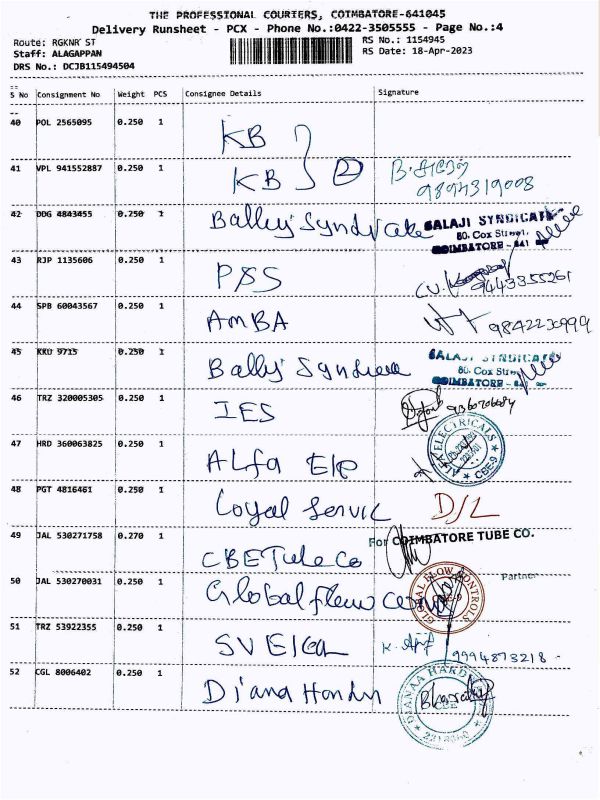 THE PROFESSIONAL COURIERS, COIMBATORE-641045
Delivery Runsheet - PCX - Phone No.:0422-3505555 - Page No.:4
Route: RGKNR ST
RS No.: 1154945
Staff: ALAGAPPAN
RS Date: 18-Apr-2023
DRS No.: DCJB115494504
S No Consignment No Weight PCS Consignee Details Signature
40 POL 2565095 0.250 1 KB
41 VPL 941552887 0.250 1 KB 2 9894319008
42 DDG 4843455 0.250 1 Ballej Syndicate BALAJI SYNDICATE
80, Cox Street,
COIMBATORE - 641
43 RJP 1135606 0.250 1 PSS 9443355261
44 SPB 60043567 0.250 1 AMBA 9842230999
45 KKU 9715 0.250 1 Ballej BALAJI SYNDICATE
80, Cox Street
COIMBATORE - 641
46 TRZ 320005305 0.250 1 IES 9360706684
47 HRD 360063825 0.250 1 ALfa Ele ALFA ELECTRICALS CBE-9
48 PGT 4816461 0.250 1 Loyal Servic D/L
49 JAL 530271758 0.270 1 CBE Tube Co For COIMBATORE TUBE CO.
Partner
50 JAL 530270031 0.250 1 Global flow GLOBAL FLOW CONTROLS
51 TRZ 53922355 0.250 1 SV 9994873218
52 CGL 8006402 0.250 1 Diana DIANAA HARD CBE